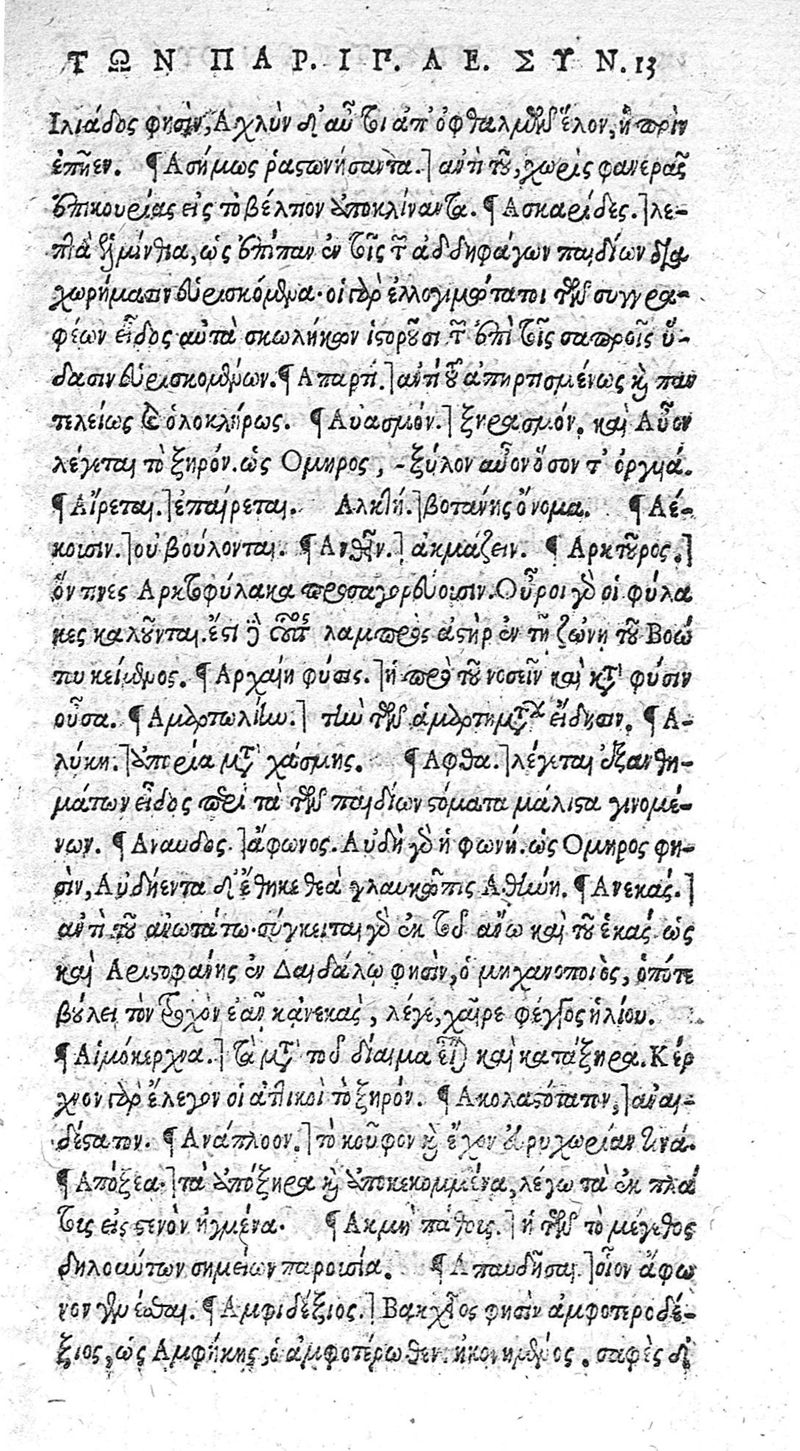 ΤΩΝ ΠΑΡ. ΙΠ. ΛΕ. ΣΥΝ. 13
Ιλιάδος φησὶν, Αχλὺν δ' αὖ τοι ἀπ' ὀφθαλμῶν ἕλον, ἣ πρὶν
ἐπῆεν. ¶ Ασήμως ῥαστωνήσαντα.] ἀντὶ τοῦ, χωρὶς φανερᾶς
ἐπικουρίας εἰς τὸ βέλτιον ὑποκλίναντα. ¶ Ασκαρίδες.] λε-
πτὰ ἑλμίνθια, ὡς ἐπίπαν ἐν τοῖς τῶν ἀδδηφάγων παιδίων δια
χωρήμασιν εὑρισκόμενα. οἱ γὰρ ἐλλογιμώτατοι τῶν συγγρα-
φέων εἶδος αὐτὰ σκωλήκων ἱστοροῦσι τῶν ἐπὶ τοῖς σαπροῖς ὕ-
δασιν εὑρισκομένων. ¶ Απαρτί.] ἀντὶ τοῦ ἀπηρτισμένως καὶ παν
τελείως καὶ ὁλοκλήρως. ¶ Αυασμόν.] ξηρασμόν. καὶ Αὖον
λέγεται τὸ ξηρόν. ὡς Ομηρος, - ξύλον αὖον ὅσον τ' ὀργυιά.
¶ Αἴρεται.] ἐπαίρεται. Αλκέη.] βοτάνης ὄνομα. ¶ Αέ-
κοισιν.] οὐ βούλονται. ¶ Ανθεῖν.] ἀκμάζειν. ¶ Αρκτοῦρος.]
ὅν τινες Αρκτοφύλακα προσαγορεύουσιν. Οὖροι γὰρ οἱ φύλα
κες καλοῦνται. ἔστι δὲ οὗτος λαμπρὸς ἀστὴρ ἐν τῇ ζώνῃ τοῦ Βοώ
του κείμενος. ¶ Αρχαίη φύσις.] ἡ πρὸ τοῦ νοσεῖν καὶ κατὰ φύσιν
οὖσα. ¶ Αμαρτωλίην.] τὴν τῶν ἁμαρτημάτων εἴδησιν. ¶ Α-
λύκη.] ἀπορία μετὰ χάσμης. ¶ Αφθα.] λέγεται ἐξανθη-
μάτων εἶδος περὶ τὰ τῶν παιδίων στόματα μάλιστα γινομέ-
νων. ¶ Αναυδος.] ἄφωνος. Αὐδὴ γὰρ ἡ φωνή. ὡς Ομηρος φη-
σὶν, Αὐδήεντα δ' ἔθηκε θεὰ γλαυκῶπις Αθήνη. ¶ Ανεκάς.]
ἀντὶ τοῦ ἀνωτάτω. σύγκειται γὰρ ἐκ τοῦ ἄνω καὶ τοῦ ἑκάς. ὡς
καὶ Αριστοφάνης ἐν Δαιδάλῳ φησὶν, ὁ μηχανοποιὸς, ὁπότε
βούλει τὸν τροχὸν ἐᾶν κἀνεκὰς, λέγε, χαῖρε φέγγος ἡλίου.
¶ Αἱμόκερχνα.] τὰ μετὰ τοῦ δίαιμα εἶναι καὶ κατάξηρα. Κέρ
χνον γὰρ ἔλεγον οἱ ἀττικοὶ τὸ ξηρόν. ¶ Ακολαστότατον.] ἀναι-
δέστατον. ¶ Ανάπλοον.] τὸ κοῦφον καὶ ἔχον εὐρυχωρίαν τινά.
¶ Απόξεα.] τὰ ἀπόξηρα καὶ ἀποκεκομμένα, λέγω τὰ ἐκ πλά
τοις εἰς στενὸν ἠγμένα. ¶ Ακμὴ πάθοις.] ἡ τῶν τὸ μέγεθος
δηλούντων σημείων παρουσία. ¶ Απαυδῆσαι.] οἷον ἄφω
νον γενέσθαι. ¶ Αμφιδέξιος.] Βακχεῖος φησὶν ἀμφοτεροδέ-
ξιος, ὡς Αμφήκης, ὁ ἀμφοτέρωθεν ἠκονημένος. σαφὲς δὲ